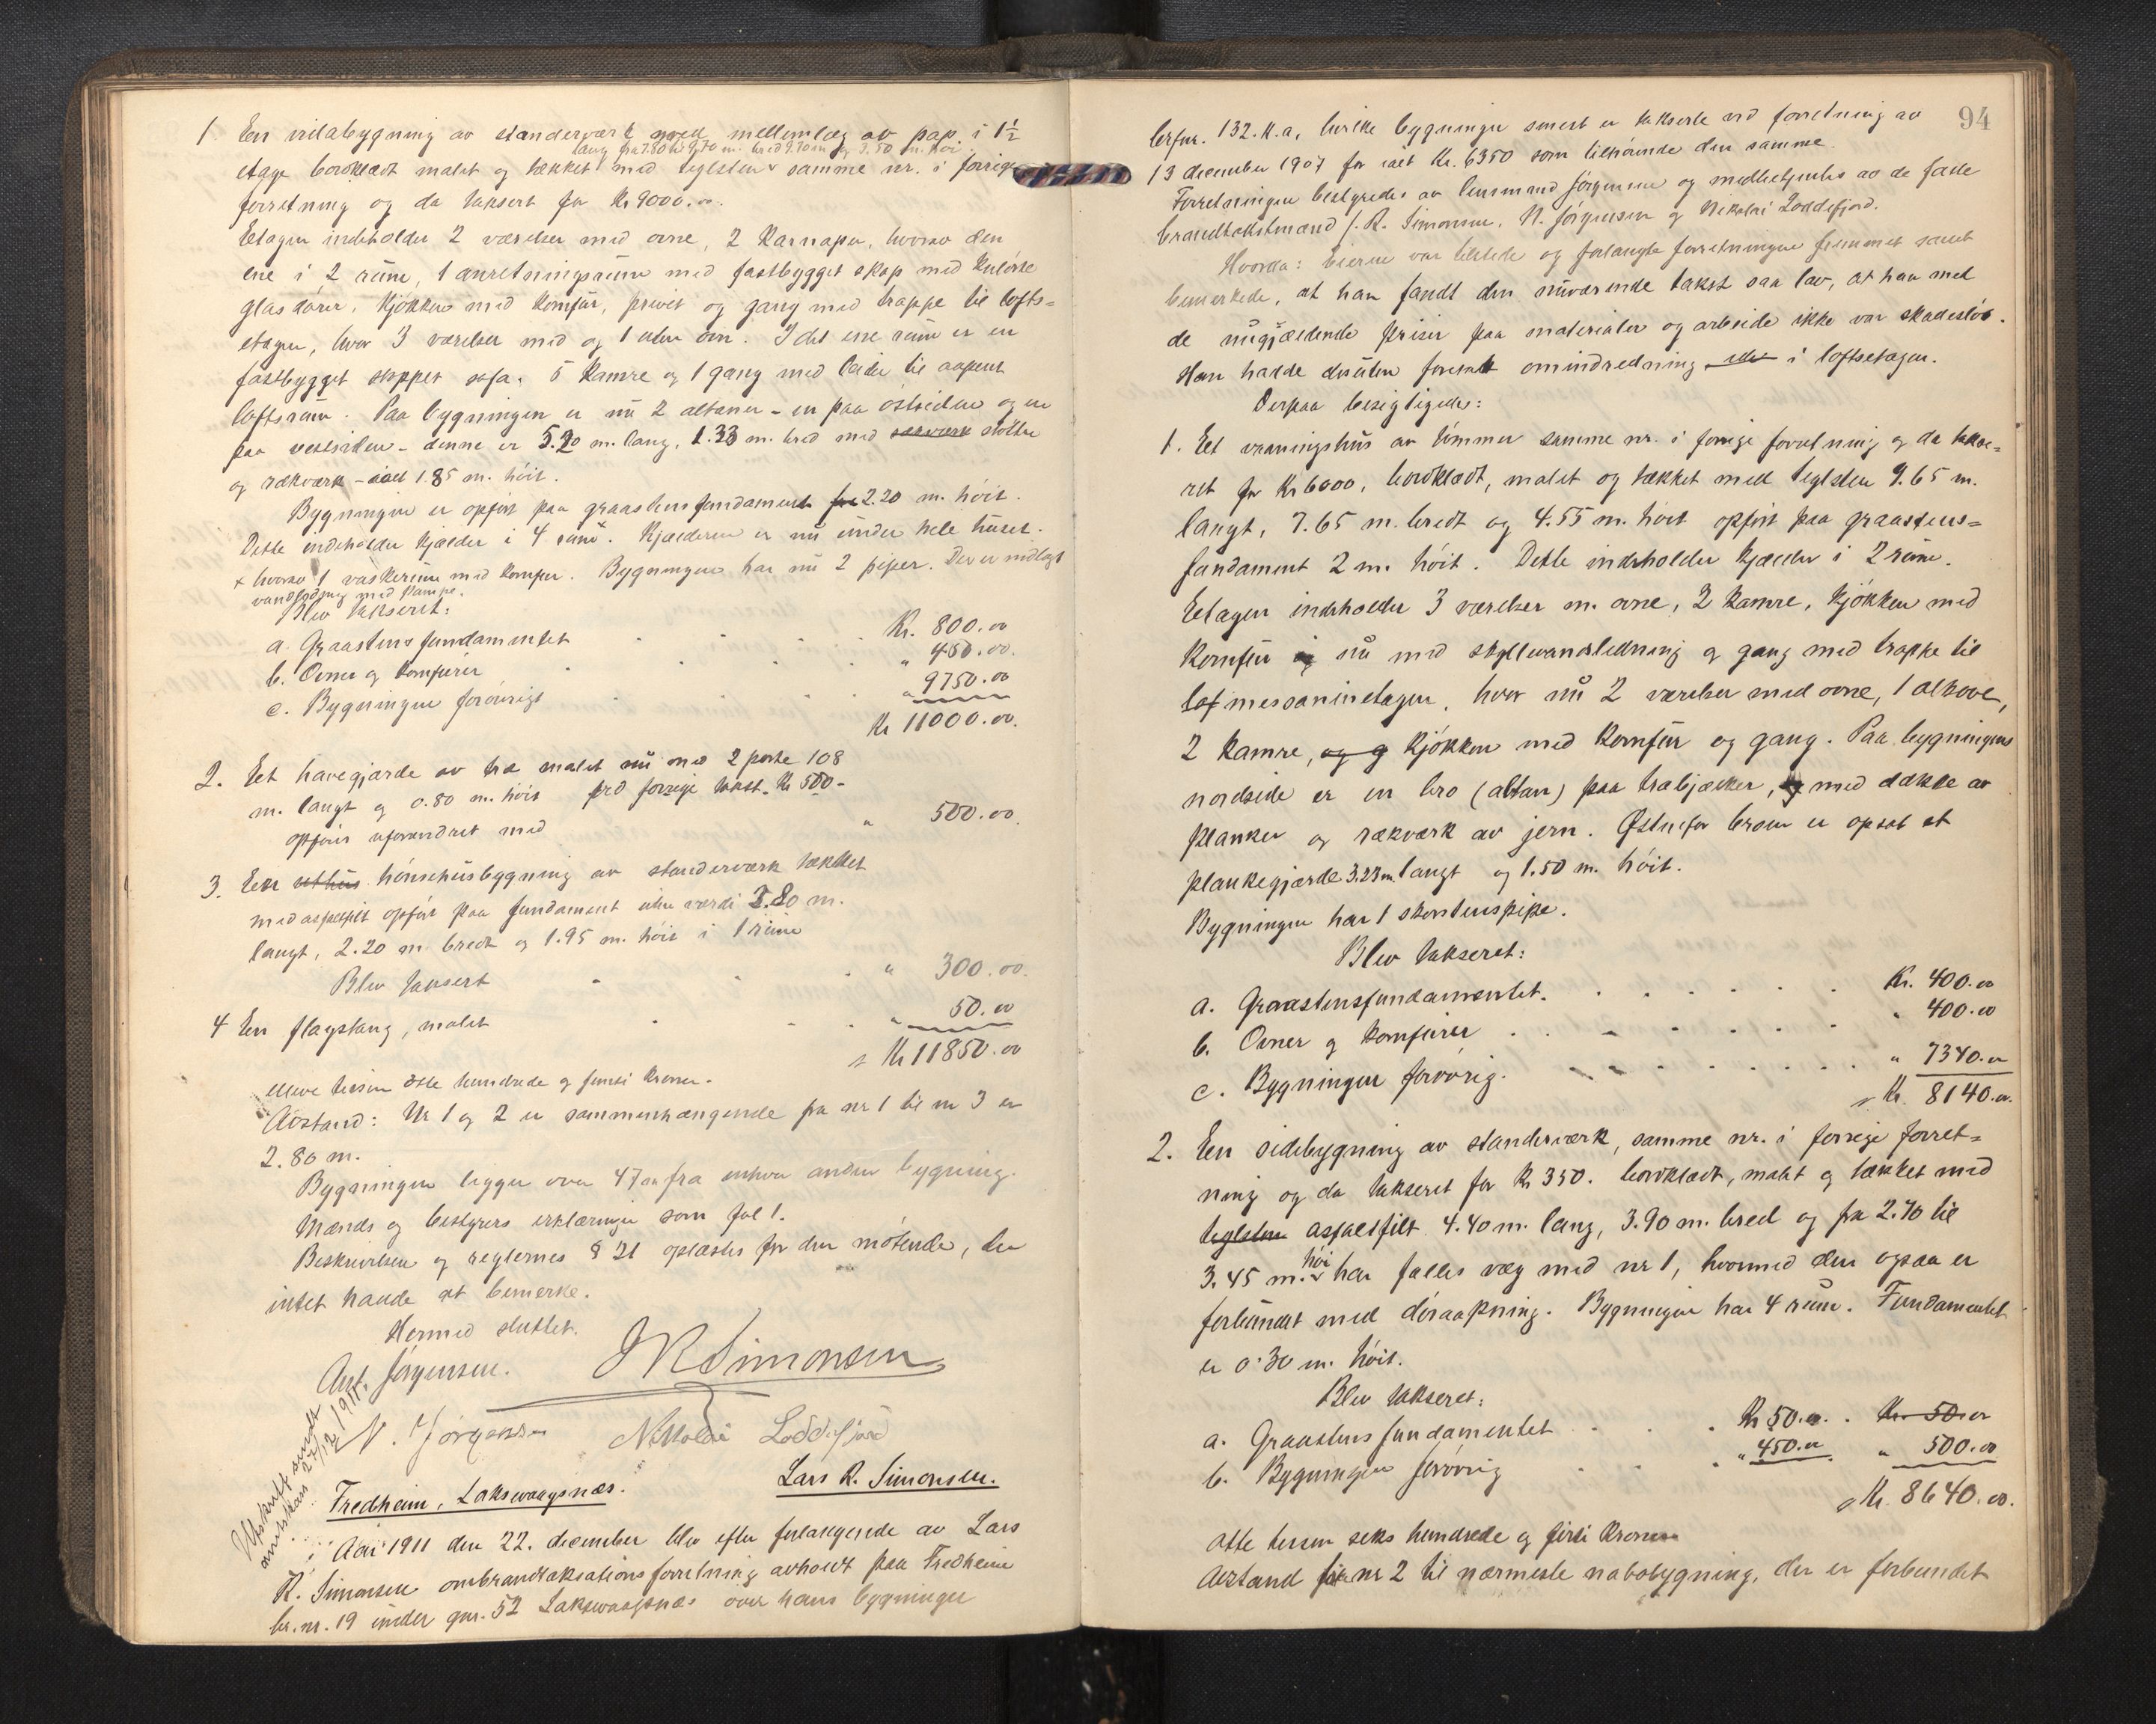 1 Een villabygning av standerværk med mellemlæg av pap i 1½
lang fra 7.80 til 9.70 m. bred 9.70 m og 3.50 m. høi
etage bordklædt malet og tækket med teglsten samme nr. i forrige
forretning og da taksert for Kr 9000.00.
Eetagen indeholder 2 værelser med ovne, 2 karnaper, hvorav den
ene i 2 rum, 1 anretningsrum med fastbygget skap med kulørte
glasdører, kjøkken med komfur, privet og gang med trappe til lofts=
etagen, hvor 3 værelser med og 1 uten ovn. I det ene rum er en
fastbygget stoppet sofa, 5 kamre og 1 gang med leider til aapent
loftsrum. Paa bygningen er nu 2 altaner - en paa østsiden og en
paa vestsiden - denne er 5.20 m. lang, 1.33 m. bred med rækværk støtter
og rækværk - ialt 1.85 m. høit.
Bygningen er opført paa graastensfundament fra 2.20 m. høit.
Dette indeholder kjælder i 4 rum. Kjælderen er nu under hele huset.
x hvorav 1 vaskerum med komfur. Bygningen har nu 2 piper. Der er indlagt
vandledning med pumpe.
Blev takseret:
a. Graastensfundamentet Kr. 800.00
b. Ovner og komfurer " 450.00.
c. Bygningen forøvrigt " 9750.00
Kr 11000.00.
2. Eet havegjærde av træ malet nu med 2 porte 108
m. langt og 0.80 m. høit prd forrige takst. Kr 500 -
opføres uforandret med " 500.00.
3. Een uthus hønsehusbygning av standerværk tækket
med asfaltfilt opført paa fundament uten værdi 3.80 m.
langt, 2.20 m bredt og 1.95 m. høit i 1 rum
Blev taksert " 300.00.
4 En flagstang, malet " 50.00
s Kr 11850.00
elleve tusen otte hundrede og femti kroner.
Avstand: Nr 1 og 2 er sammenhængende fra nr 1 til nr 3 er
2.80 m.
Bygningen ligger over 47 m fra enhver anden bygning.
Mænds og bestyrers erklæringer som fol 1.
Beskrivelsen og reglernes § 21 oplæstes for den møtende, der
intet havde at bemerke.
Hermed sluttet.
Ant. Jørgensen. J R Simonsen
N. Jørgensen Nikolai Loddefjord
Utskrift sendt
amtskas 27/12 1911
Fredheim, Laksevaagsnæs. Lars R. Simonsen.
Aar 1911 den 22. december blev efter forlangende av Lars
R. Simonsen ombrandtaksationsforretning avholdt paa Fredheim
br. nr. 19 under gnr. 52 Laksevaagsnæs over hans bygninger
94
brfnr. 132.K.a, hvilke bygninger senest er takserte ved forretning av
13 december 1907 for ialt Kr. 6350 som tilhørende den samme.
Forretningen bestyredes av lensmand Jørgensen og medbetjentes av de faste
brandtakstmænd J. R. Simonsen, N. Jørgensen og Nikolai Loddefjord.
Hvorda: Eieren var tilstede og forlangte forretningen fremmet samt
bemerkede, at han fandt den nuværende takst saa lav, at han med
de nugjældende priser paa materialer og arbeide ikke var skadesløs.
Han hadde desuten foretat omindredning i loftsetagen.
Derpaa besigtigedes:
1. Et vaaningshus av tømmer samme nr. i forrige forretning og da takse=
ret for Kr 6000, bordklædt, malet og tækket med teglsten 9.65 m.
langt, 7.65 m. bredt og 4.55 m. høit opført paa graastens=
fundament 2 m. høit. Dette indeholder kjælder i 2 rum.
Eetagen indeholder 3 værelser m. ovne, 2 kamre, kjøkken med
komfur og nu med skyllevandsledning og gang med trappe til
lof messaninetagen, hvor nu 2 værelser med ovne, 1 alkove,
2 kamre, og g kjøkken med komfur og gang. Paa bygningens
nordside er en bro (altan) paa træbjælker, og med dække av
planker og rækværk av jern. Østenfor broen er opsat et
plankegjærde 3.23 m. langt og 1.50 m. høit.
Bygningen har 1 skorstenspipe.
Blev takseret:
a. Graastensfundamentet. Kr. 400.00
b. Ovner og komfurer " 400.00
c. Bygningen forøvrig. " 7340.00
s Kr. 8140.00.
2. En sidebygning av standerværk, samme nr. i forrige forret=
ning og da takseret for Kr 350. bordklædt, malet og tækket med
teglsten asfaltfilt 4.40 m. lang, 3.90 m. bred og fra 2.70 til
3.45 m. høi har fælles væg med nr 1, hvormed den ogsaa er
forbundet med døraapning. Bygningen har 4 rum. Fundamentet
er 0.30 m. høit.
Blev takseret:
a. Graastensfundamentet Kr 50.00. Kr 50.00
b. Bygningen forøvrig " 450.00 " 500.00
s Kr. 8640.00.
otte tusen seks hundrede og firti kroner
Avstand fra nr 2 til nærmeste nabobygning, der er forbundet